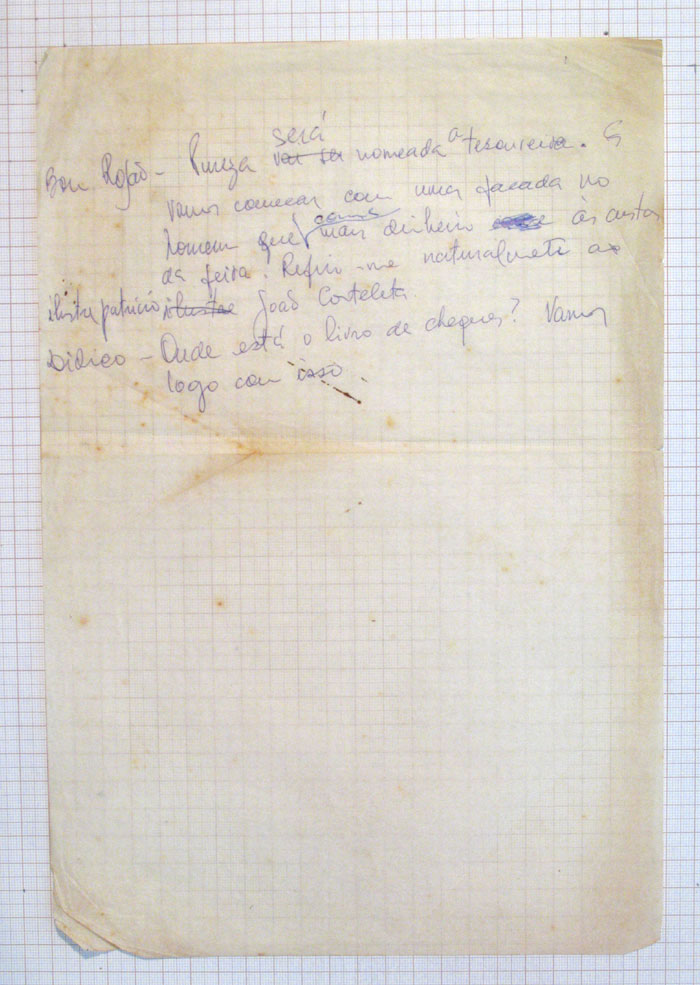 será
Bom Rojão - Pureza vai ser nomeada a tesoureira. E
vamos começar com uma facada no
ganha
homem que mais dinheiro às custas
da feira. Refiro-me naturalmente ao
ilustre patrício ilustre João Costeleta.
Didico - Onde está o livro de cheques? Vamos
logo com isso.